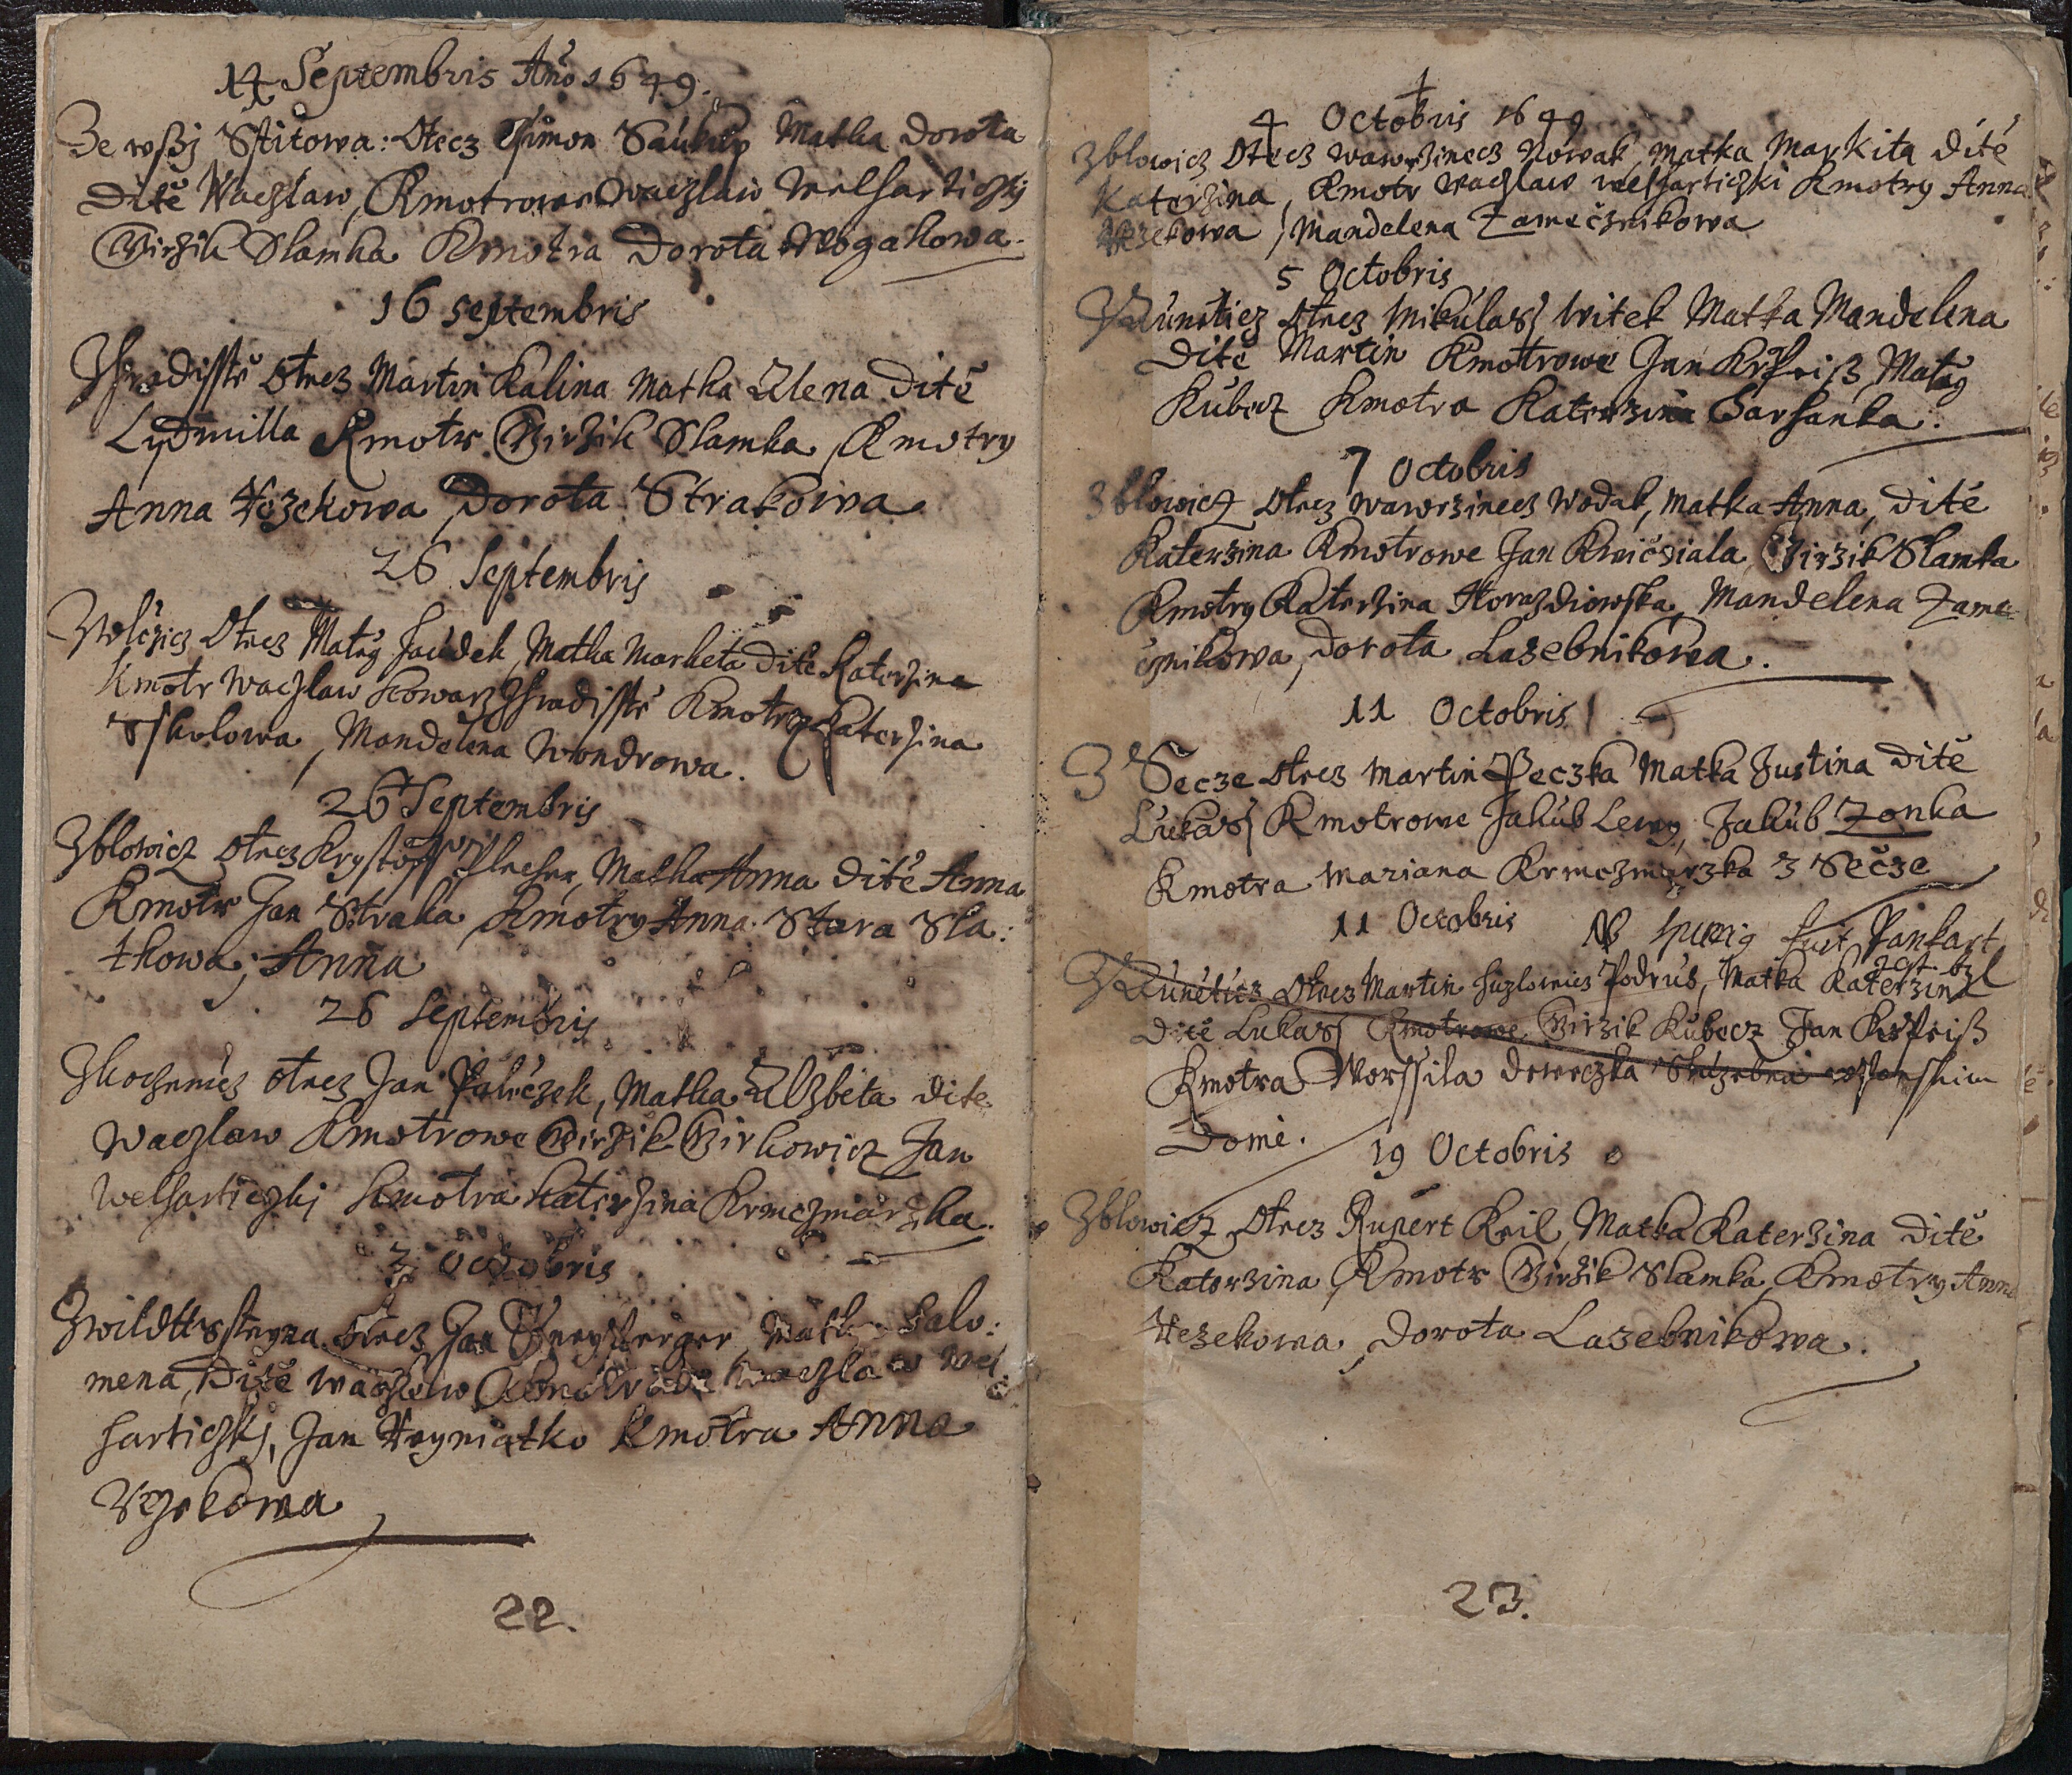 14 Septembris Año 1649.
Ze wßj Sstitowa: Otecz Ssimon Saukup Matka Dorota
Ditě Waczlaw, Kmotrowe Waczlaw Welharticzky
Girzik Slamka Kmotra Dorota Wogakowa.
16 Septembris
Zhradisstě Otecz Martin Kalina Matka Ulena Ditě
Lydmilla Kmotr Girzik Slamka, Kmotry
Anna Wczekowa, Dorota Strakowa
26 Septembris
Otecz Matěg Matka Markéta Ditě Katerzina
Kmotr Waczlaw Kowarz Zhradisstě Kmotry Katerzina
Sskolowa, Mandelena Wondrowa.
26 Septembris
Zblowicz Otecz Krystoff Matka Anna Ditě Anna
Kmotr Jan Straka Kmotry Anna Stara Sla:
tkowa, Anna
26 Septembris
Otecz Jan Matka Alzběta Ditě
Waczlaw Kmotrowe Girzik Girkowicz Jan
Welharticzkj Kmotra Katerzina Krmczmarzka.
3 Octobris
Otecz Jan Matka Salo:
mena, Ditě Waczlaw Kmotrowe Waczlaw Wel
harticzkj, Jan Kmotra Anna
22.
4 Octobris 1649
Zblowicz Otecz Wawrzinecz Nowak, Matka Markita Ditě
Katerzina, Kmotr Waczlaw Welharticzki Kmotry Anna
Wczekowa, Mandelena Zamecznikowa
5 Octobris
Otecz Mikulass Witek Matka Mandelena
Ditě Martin Kmotrowe Jan Matěg
Kubecz Kmotra Katerzina
7 Octobris
Zblowicz Otecz Wawrzinecz Wodak, Matka Anna, Ditě
Katerzina Kmotrowe Jan Kwiczala, Girzik Slamka
Kmotry Katerzina Horazdiowska, Mandelena Zame
cznikowa, Dorota Lazebnikowa.
11 Octobris
Z Secze Otecz Martin Peczka Matka Justina Ditě
Lukass Kmotrowe Jakub Lewy, Jakub Zonka
Kmotra Mariana Krmczmarzka z Sečze
11 Octobris
Otecz Martin Podrus, Matka Katerzina
Ditě Lukass Kmotrowe Girzik Kubecz Jan
Kmotra Worssila Deweczka
Domě.
19 Octobris
Zblowicz Otecz Rupert Kril, Matka Katerzina Ditě
Katerzina, Kmotr Girzik Slamka, Kmotry Anna
Wczekowa, Dorota Lazebnikowa.
23.